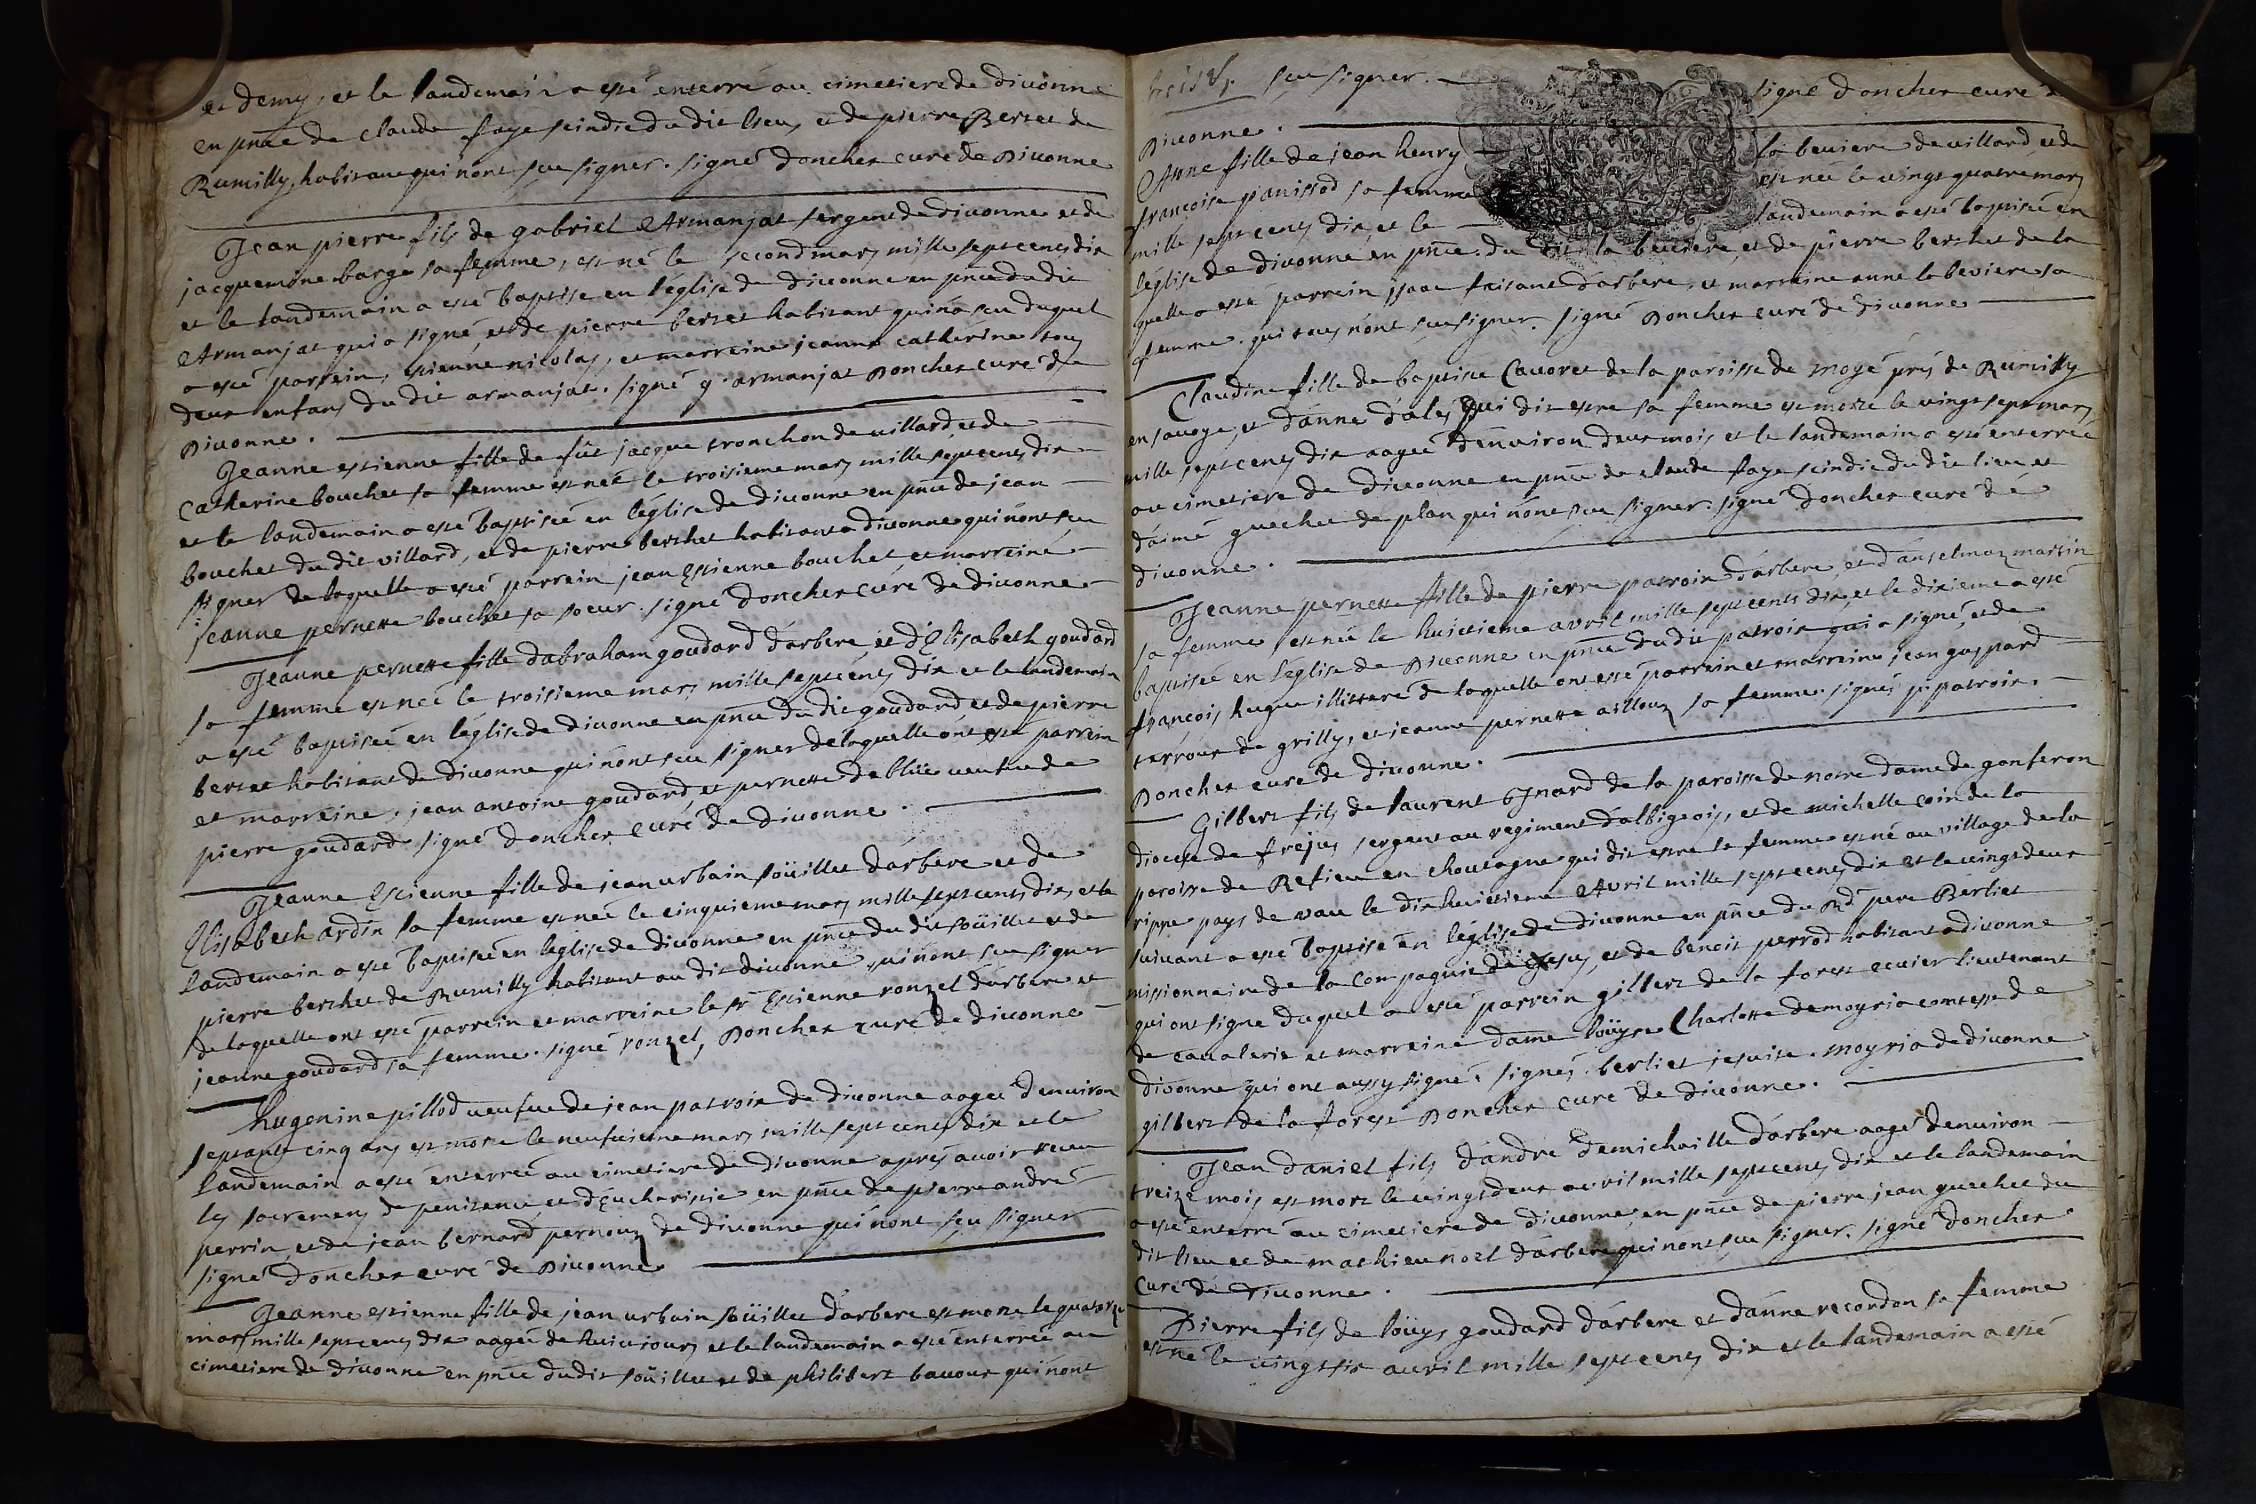 et demy, et le landemain a esté enterré au cimetiere de divonne
en pnce de claude faye scindic du dit lieu, et de pierre Berset de
Rumilly, habitant qui nont sçeu signer. signé Doncher curé de Divonne
Jean pierre fils de gabriel Armanjat sergent de divonne et de
jacquemone barge sa femme, est né le second mars mille sept cens dix
et le landemain a esté baptisé en l'église de divonne en pnce du dit
Armanjat qui a signé, et de pierre berset habitant qui n'a sçeu duquel
a esté parrein, estienne nicolas, et marreine jeanne catherine tous
deux enfans du dit armanjat. signé g. armanjat Doncher curé de
Divonne.
Jeanne estienne fille de fût jacque tronchon de villard et de
Catherine bouchet sa femme est née le troisieme mars mille sept cens dix
et le landemain a esté baptisée en l'église de divonne en pnce de jean
bouchet du dit villard, et de pierre berthet habitant a divonne qui n'ont sçeu
signer de laquelle a esté parrein jean Estienne bouchet et marreine
jeanne pernette bouchet sa soeur. signé Doncher curé de divonne
Jeanne pernette fille d'abraham goudard d'arbere et d'Elisabeth goudard
sa femme est née le troisieme mars mille sept cens dix et le landemain
a esté baptisée en l'église de divonne en pnce du dit goudard et de pierre
berset habitant de divonne qui n'ont sçeu signer de laquelle ont esté parrein
et marreine, jean antoine goudard et pernette deblüe veufve de
pierre goudard signé Doncher curé de divonne.
Jeanne Estienne fille de jean urbain soüillet d'arbere et de
Elisabeth ardin sa femme est née le cinquieme mars mille sept cents dix, et le
landemain a esté baptisée en l'église de divonne en pnce du dit soüillet et de
pierre berthet de Rumilly habitant au dit divonne qui n'ont sçeu signer
de laquelle ont esté parrein et marreine le sr Estienne rouzel d'arbere et
jeanne goudard sa femme. signé rouzel, Doncher curé de divonne
hugonine pillod veufve de jean patroix de divonne aagée d'environ
septante cinq ans est morte le neufvieme mars mille sept cens dix et le
landemain a esté enterrée au cimetiere de divonne apres avoir receu
les sacremens de penitence et d'Eucharistie en pnce de pierre andré
perrin, et de jean bernard pernoux de divonne qui nont sçeu signer
signé Doncher curé de Divonne
Jeanne estienne fille de jean urbain soüillet d'arbere est morte le quatorze
mars mille sept cens dix aagée de huict jours et le landemain a esté enterrée au
cimetiere de divonne en pnce du dit soüillet et de philibert bavoux qui n'ont
sçeu signer. signé Doncher curé de
Divonne.
Anne fille de jean henry la beviere de villard, et de
françoise panissod sa femme est née le vingt quatre mars
mille sept cens dix, et le landemain a esté baptisée en
l'église de divonne en pnce. du dit la beviere, et de pierre berthet de la
quelle a esté parrein jsaac faisant d'arbere, et marreine anne la beviere sa
femme. qui tous n'ont sçeu signer. signé Doncher curé de divonne
Claudine fille de baptiste Cavoret de la paroisse de moyé prés de Rumilly
en savoye, et d'anne d'ales qui dit estre sa femme est morte le vingt sept mars
mille sept cens dix aagée d'environ deux mois et le landemain a esté enterrée
au cimetiere de divonne en pnce de claude faye scindic du dit lieu et
d'aimé guechet de plan qui n'ont sçeu signer. signé Doncher curé de
divonne.
Jeanne pernette fille de pierre patroix d'arbere, et d'anselmaz martin
sa femme est née le huictieme avril mille sept cents dix, et le dixieme a esté
baptisée en l'église de Divonne en pnce du dit patroix qui a signé, et de
françois hugue illitteré de laquelle ont esté parrein et marreine jean gaspard
terroux de grilly, et jeanne pernette ailloux sa femme. signés p. patroix.
Doncher curé de divonne.
Gilbert fils de laurent Gjnard de la paroisse de notre dame de gonferon
diocese de frejus sergent au regiment d'albigeois, et de michelle coin de la
paroisse de Refieu en chautagne qui dit estre sa femme est né au village de la
rippe pays de vau le dix huictieme Avril mille sept cens dix et le vingt deux
suivant a esté baptisé en l'église de divonne en pnce du Rd pere Berliet
missionnaire de la Compagnie de Jesus, et de benoit perrod habitant a divonne
qui ont signé duquel a esté parrein gilbert de la forest ecuier lieutenant
de cavalerie et marreine dame Loüyse Charlotte demoyria comtesse de
divonne qui ont aussy signé. signés. berliet jesuite. moyria de divonne
gilbert de la forest Doncher curé de divonne.
Jean daniel fils d'andré Demichaille d'arbere aagé d'environ
treize mois est mort le vingt deux avril mille sept cens dix et le landemain
a esté enterré au cimetiere de divonne, en pnce de pierre jean guechet du
dit lieu et de mathieu noel d'arbere qui n'ont sçeu signer. signé Doncher
curé de divonne.
Pierre fils de loüys goudard d'arbere et d'anne recordon sa femme
est né le vingt six avril mille sept cens dix et le landemain a esté